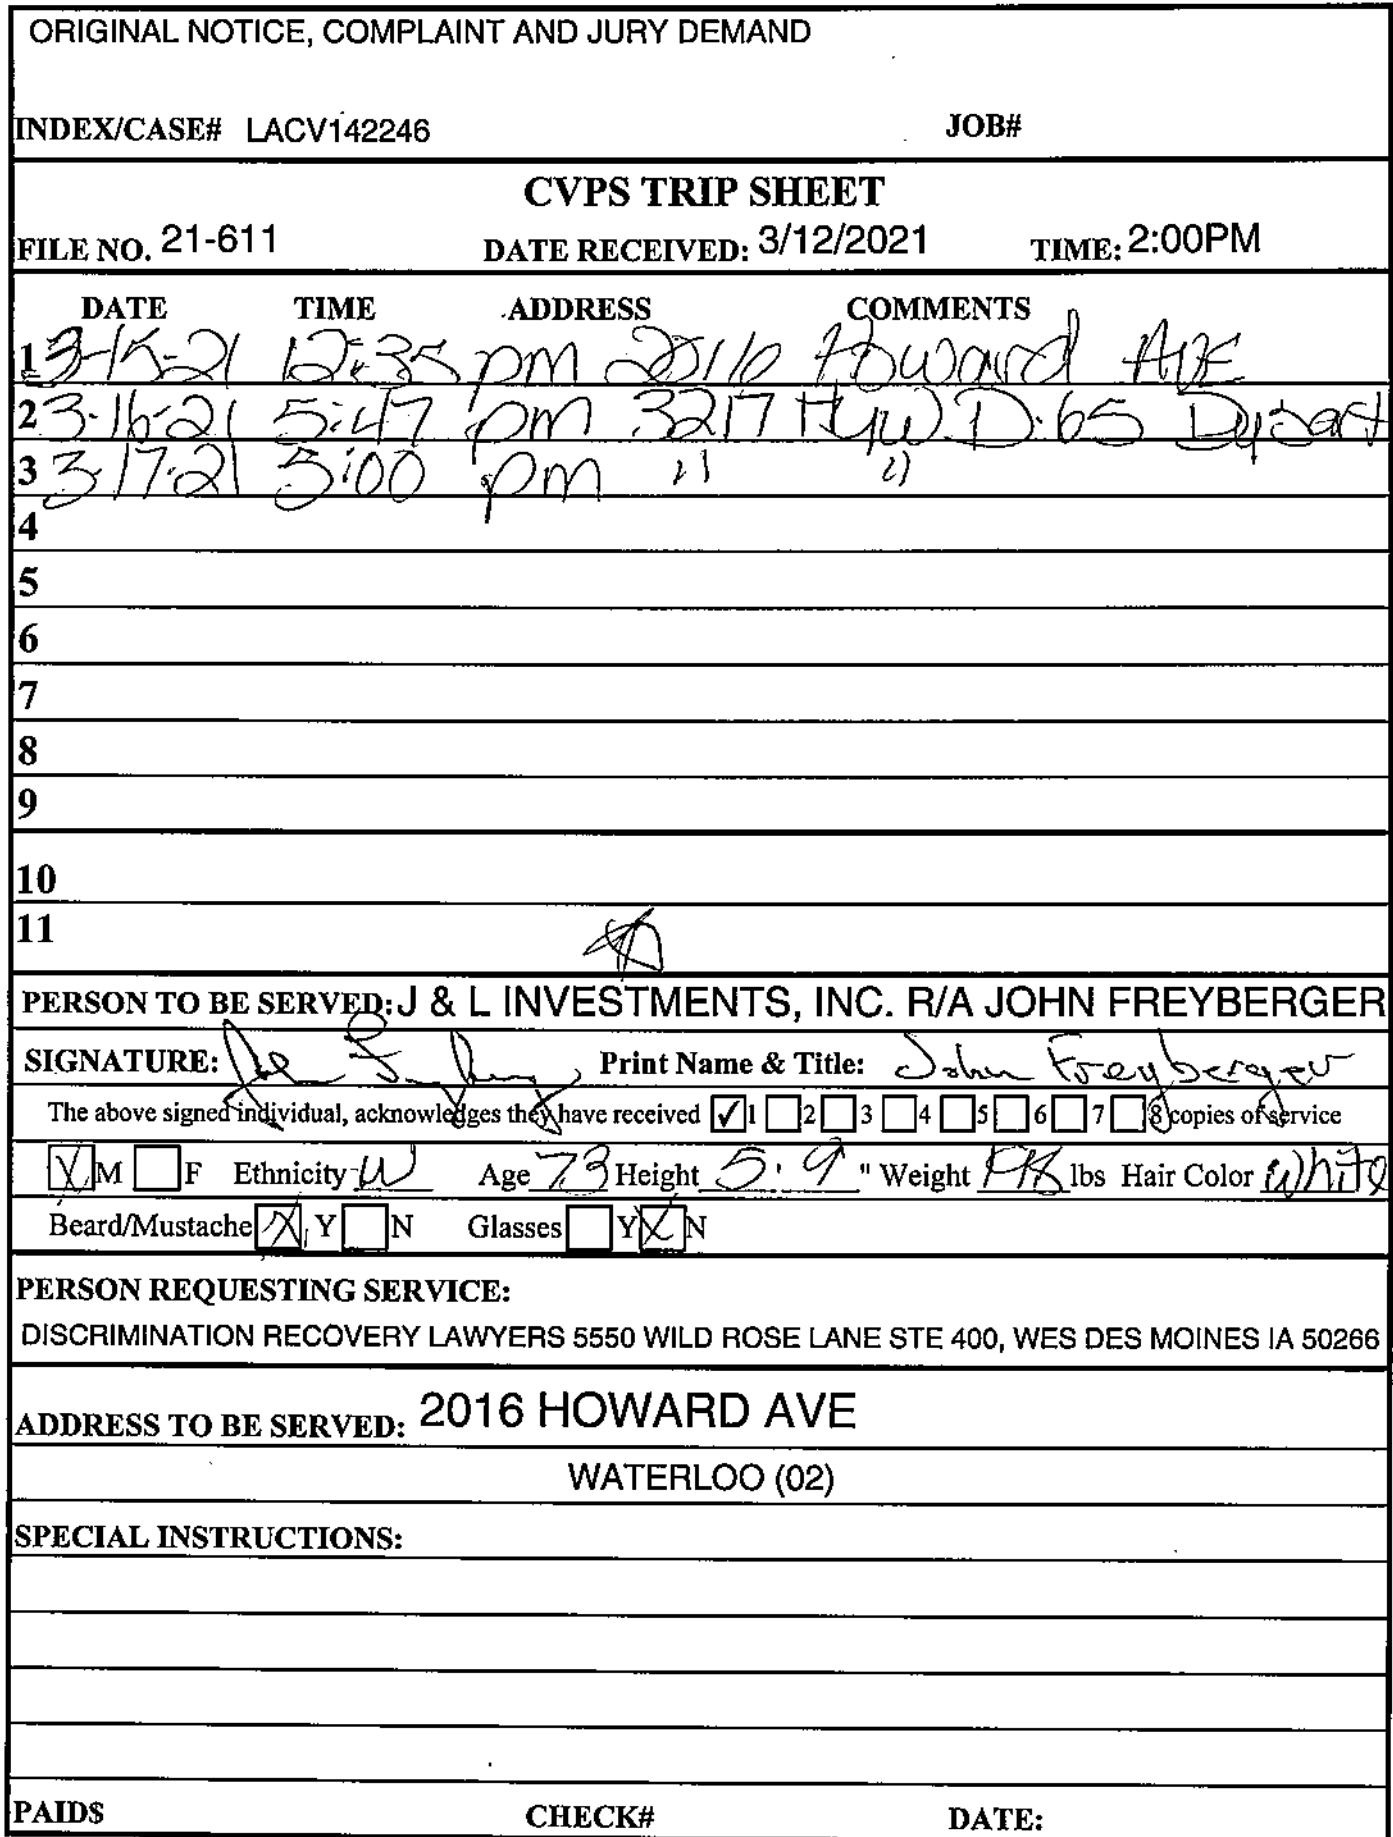 ORIGINAL NOTICE, COMPLAINT AND JURY DEMAND
INDEX/CASE# LACV142246 JOB#
CVPS TRIP SHEET
FILE NO. 21-611 DATE RECEIVED: 3/12/2021 TIME: 2:00PM
DATE TIME ADDRESS COMMENTS
1 3-15-21 12:35 pm 2016 Howard Ave
2 3-16-21 5:47 pm 3217 Hyw D.65 Dysart
3 3-17-21 5:00 pm " "
4
5
6
7
8
9
10
11
PERSON TO BE SERVED: J & L INVESTMENTS, INC. R/A JOHN FREYBERGER
SIGNATURE: Print Name & Title: John Freyberger
The above signed individual, acknowledges they have received ✓ 1 2 3 4 5 6 7 8 copies of service
X M F Ethnicity W Age 73 Height 5.9 " Weight lbs Hair Color White
Beard/Mustache X Y N Glasses Y X N
PERSON REQUESTING SERVICE:
DISCRIMINATION RECOVERY LAWYERS 5550 WILD ROSE LANE STE 400, WES DES MOINES IA 50266
ADDRESS TO BE SERVED: 2016 HOWARD AVE
WATERLOO (02)
SPECIAL INSTRUCTIONS:
PAID$ CHECK# DATE: